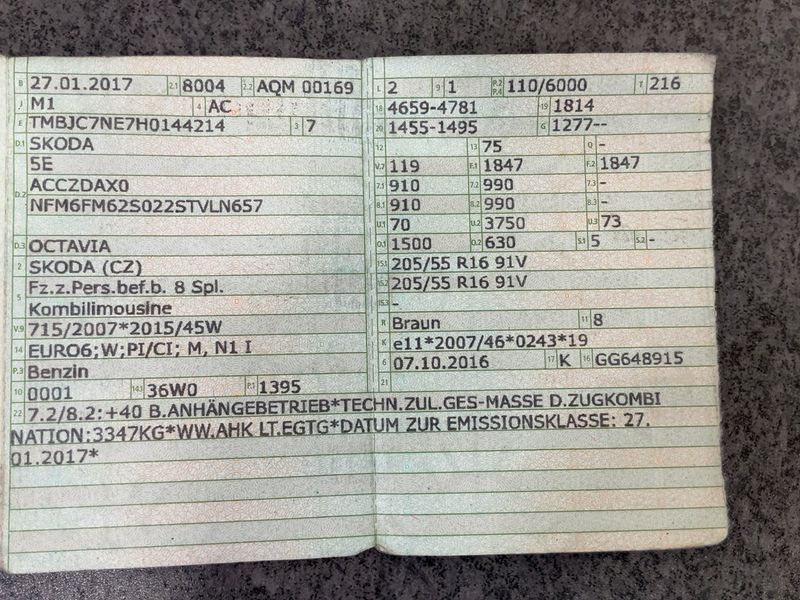 B 27.01.2017 2.1 8004 2.2 AQM 00169
J M1 4 AC
E TMBJC7NE7H0144214 3 7
D.1 SKODA
5E
D.2 ACCZDAX0
NFM6FM62S022STVLN657
D.3 OCTAVIA
2 SKODA (CZ)
5 Fz.z.Pers.bef.b. 8 Spl.
Kombilimousine
V.9 715/2007*2015/45W
14 EURO6;W;PI/CI; M, N1 I
P.3 Benzin
10 0001 14.1 36W0 P.1 1395
L 2 9 1 P.2 P.4 110/6000 T 216
18 4659-4781 19 1814
20 1455-1495 G 1277--
12 13 75 Q -
V.7 119 F.1 1847 F.2 1847
7.1 910 7.2 990 7.3 -
8.1 910 8.2 990 8.3 -
U.1 70 U.2 3750 U.3 73
O.1 1500 O.2 630 S.1 5 S.2 -
15.1 205/55 R16 91V
15.2 205/55 R16 91V
15.3 -
R Braun 11 8
K e11*2007/46*0243*19
6 07.10.2016 17 K 16 GG648915
21
22 7.2/8.2:+40 B.ANHÄNGEBETRIEB*TECHN.ZUL.GES-MASSE D.ZUGKOMBI
NATION:3347KG*WW.AHK LT.EGTG*DATUM ZUR EMISSIONSKLASSE: 27.
01.2017*